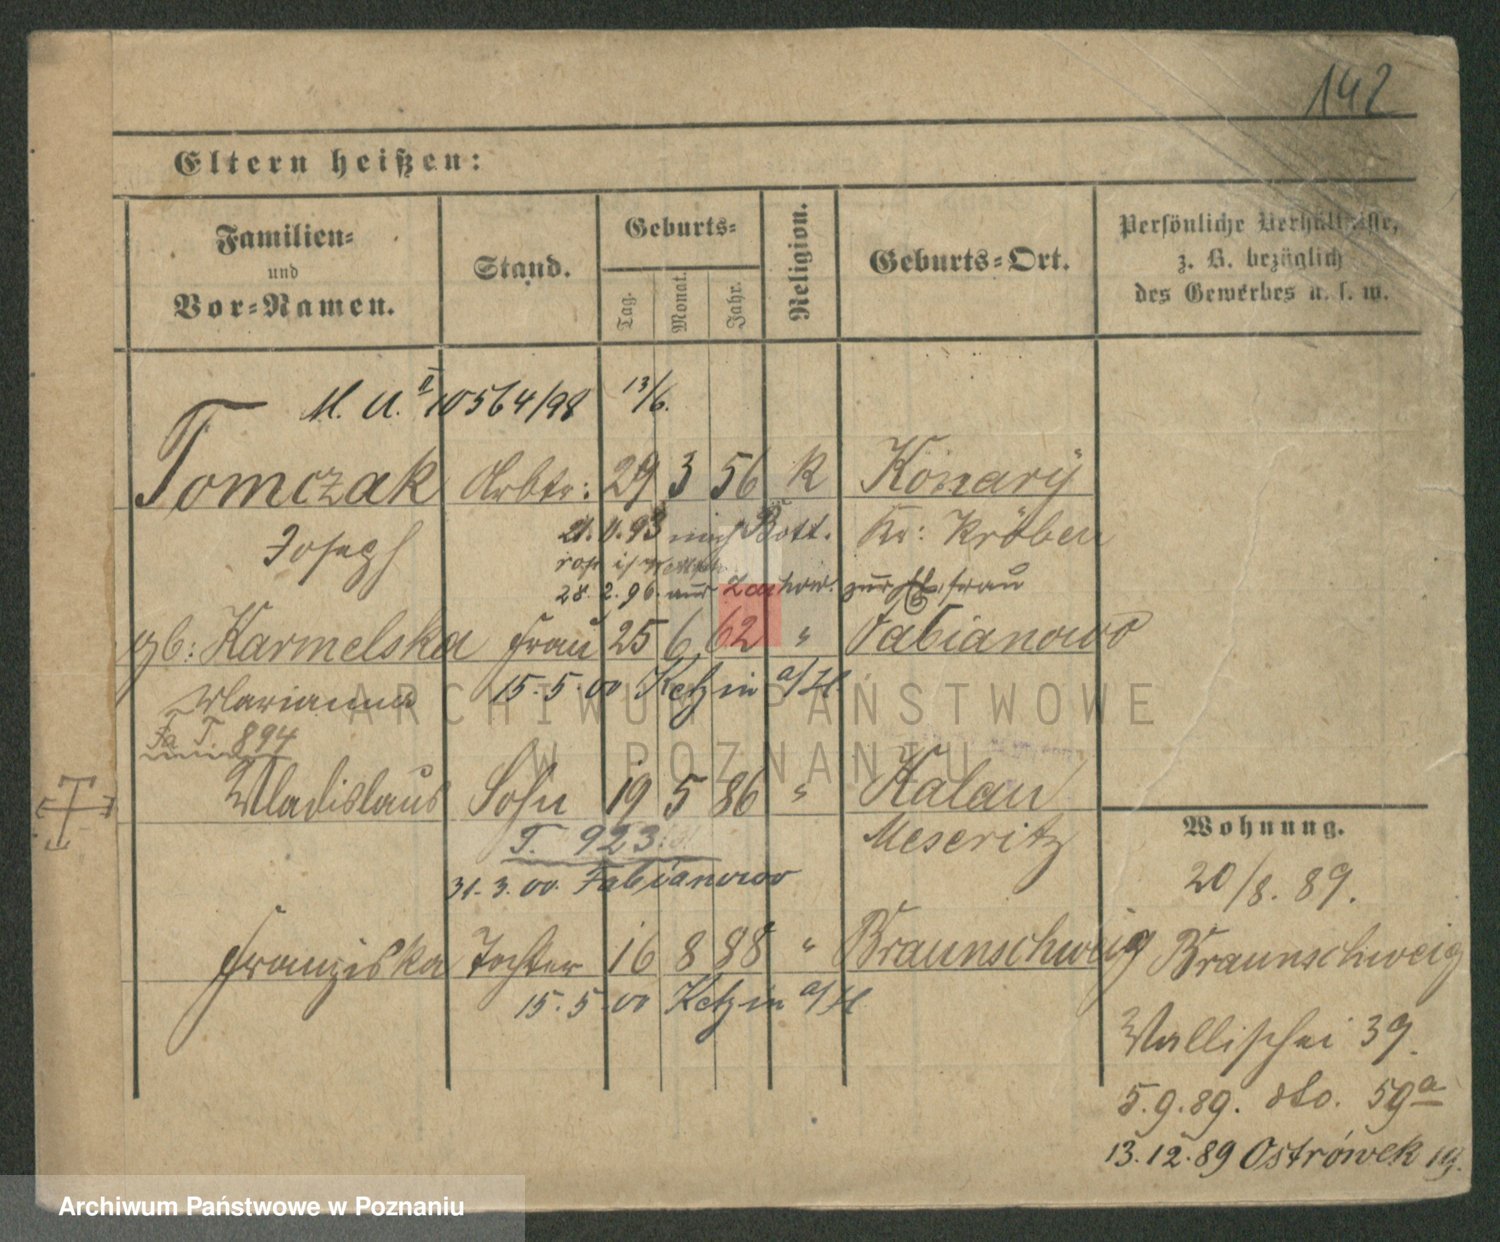 142
Eltern heißen:
Familien=
und
Vor=Namen.
Stand.
Geburts=
Tag.
Monat.
Jahr.
Religion.
Geburts=Ort.
Persönliche Verhältnisse,
z. B. bezüglich
des Gewerbes u. s. w.
M. U. II 10564/98 13/6.
Tomczak Arbtr: 29 3 56 K Konarÿ
Joseph 21. 11. 93 nach Bott. Kr: Kröben
28. 2. 96. aus zur frau
gb: Karmelska Frau 25 6 62 " Fabianowo
Marianna 15. 5. 00 Ketzin a/H
Fa T. 894
Wladislaus Sohn 19 5 86 " Kalau
T. 923. Meseritz
31. 3. 00. Fabianowo
Franziska Tochter 16 8 88 " Braunschweig
15. 5. 00 Ketzin a/H
Wohnung.
20/8. 89.
Braunschweig
Wallischei 39.
5. 9. 89. dto. 59a
13. 12. 89 Ostrówek 19.
ARCHIWUM PAŃSTWOWE
W POZNANIU
Archiwum Państwowe w Poznaniu